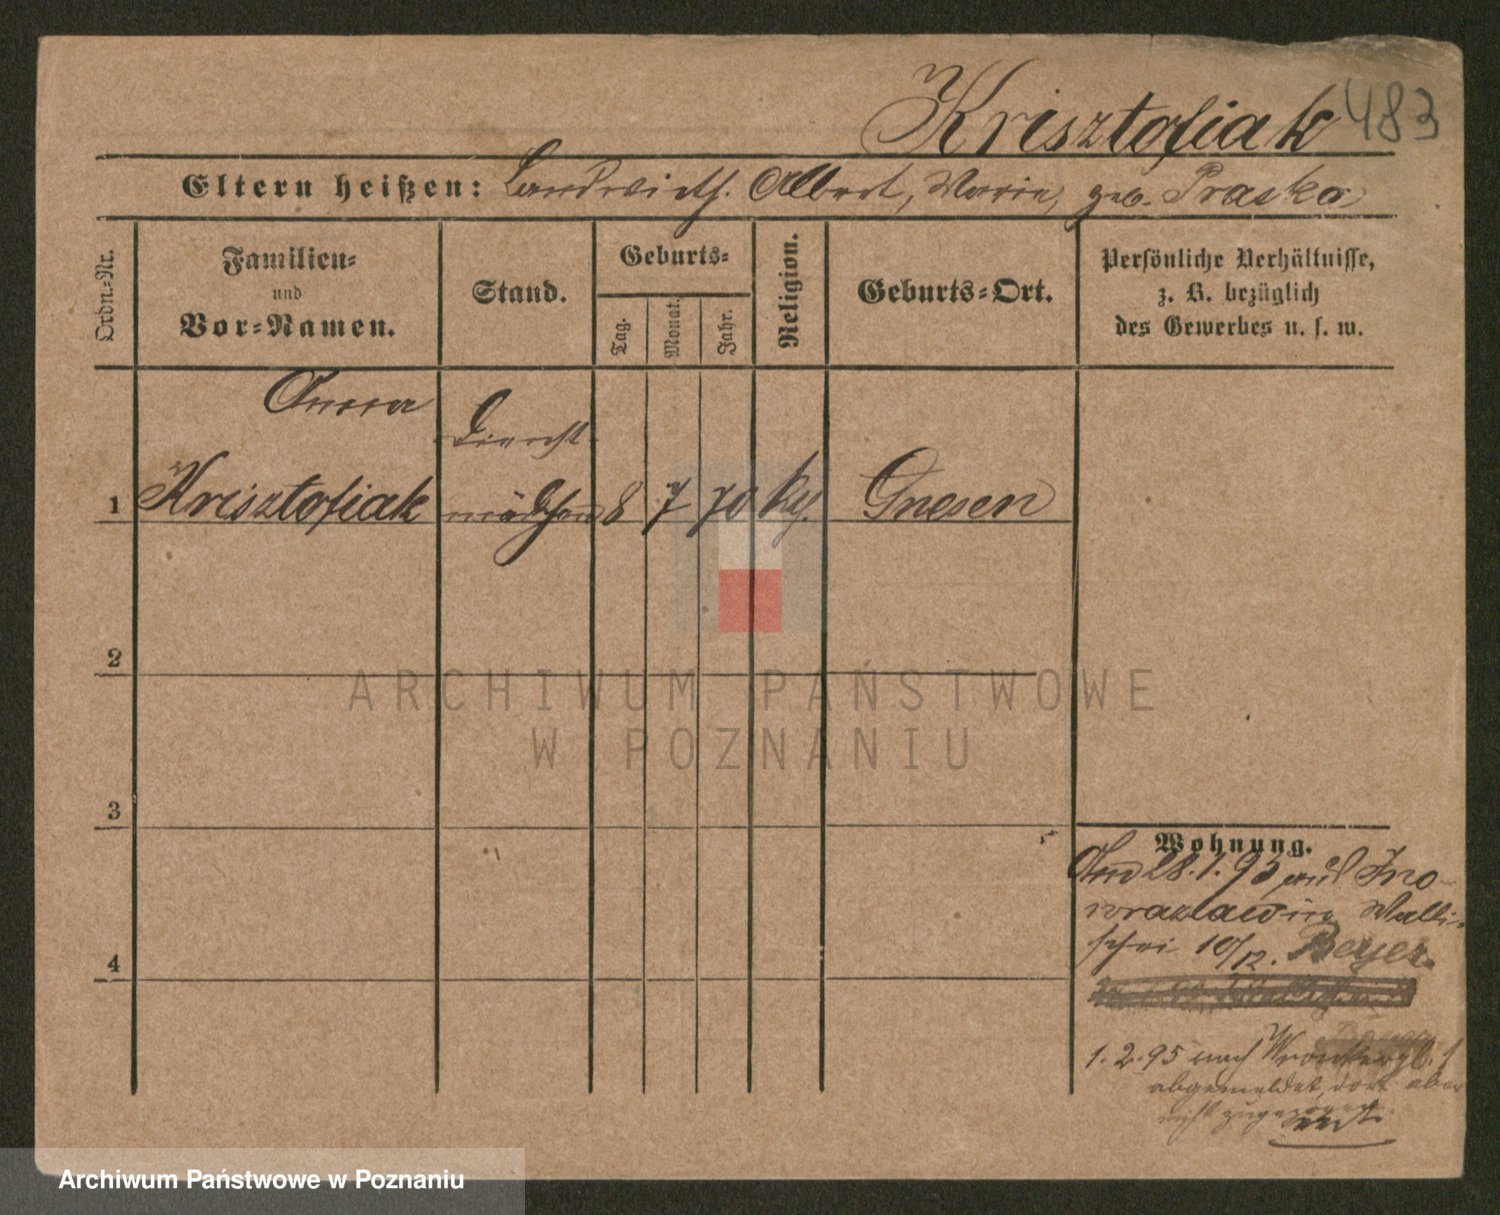 Krisztofiak 483
Eltern heißen: Landwirth. Albert, Marie, geb. Praska
Ordn.-Nr.
Familien-
und
Vor-Namen.
Stand.
Geburts-
Tag.
Monat.
Jahr.
Religion.
Geburts-Ort.
Persönliche Verhältnisse,
z. B. bezüglich
des Gewerbes u. s. w.
Anna
Dienst-
1 Krisztofiak mädchen 8 7 70 ky. Gnesen
2
3
4
Wohnung.
Am 28.1.95 aus Ino-
wrazlaw in Walli-
schei 10/12. Beyer.
1.2.95 nach
abgemeldet, dort aber
nicht zugezogen.
ARCHIWUM PAŃSTWOWE
W POZNANIU
Archiwum Państwowe w Poznaniu